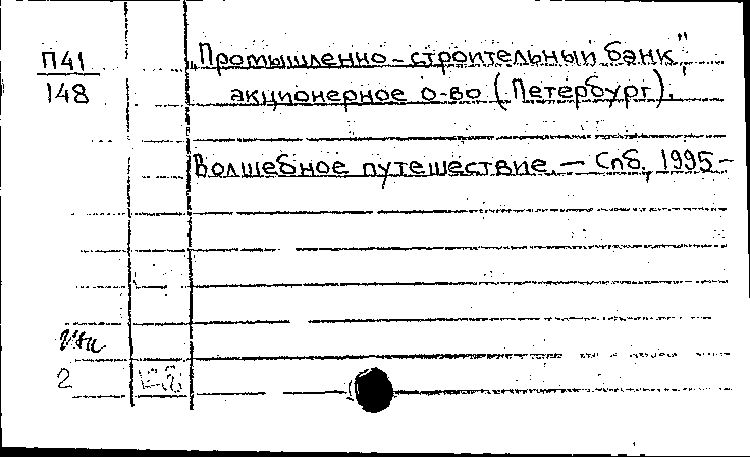 П41
148
„Промышленно-строительный банк"
акционерное о-во (Петербург).
Волшебное путешествие. — Спб, 1995-
2